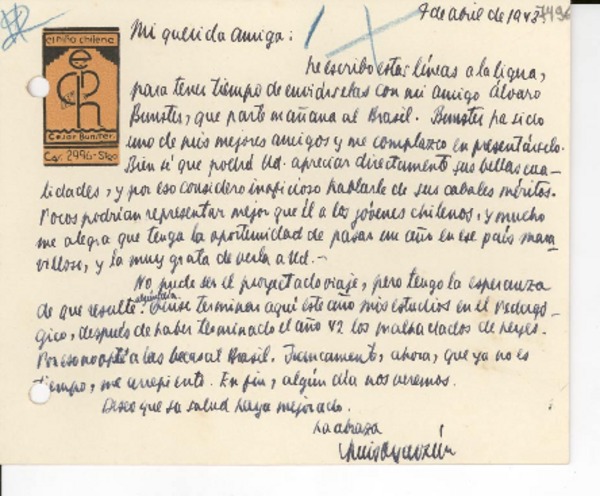 9 de abril de 1943
7496
Mi querida amiga:
el niño chileno
ech
César Bunster
Cas. 2996 - Stgo
Le escribo estas líneas a la ligera,
para tener tiempo de enviárselas con mi amigo Álvaro
Bunster, que parte mañana al Brasil. Bunster ha sido
uno de mis mejores amigos y me complazco en presentárselo.
Bien sé que podrá Ud. apreciar directamente sus bellas cua-
lidades, y por eso considero inoficioso hablarle de sus cabales méritos.
Pocos podrían representar mejor que él a los jóvenes chilenos, y mucho
me alegra que tenga la oportunidad de pasar un año en ese país mara-
villoso, y la muy grata de verla a Ud. -
No pudo ser el proyectado viaje, pero tengo la esperanza
de que resulte algún día. Quise terminar aquí este año mis estudios en el Pedagó-
gico, después de haber terminado el año 42 los malhadados de leyes.
Por eso no opté a las becas al Brasil. Francamente, ahora, que ya no es
tiempo, me arrepiento. En fin, algún día nos veremos.
Deseo que su salud haya mejorado.
La abraza
Luis Oyarzún